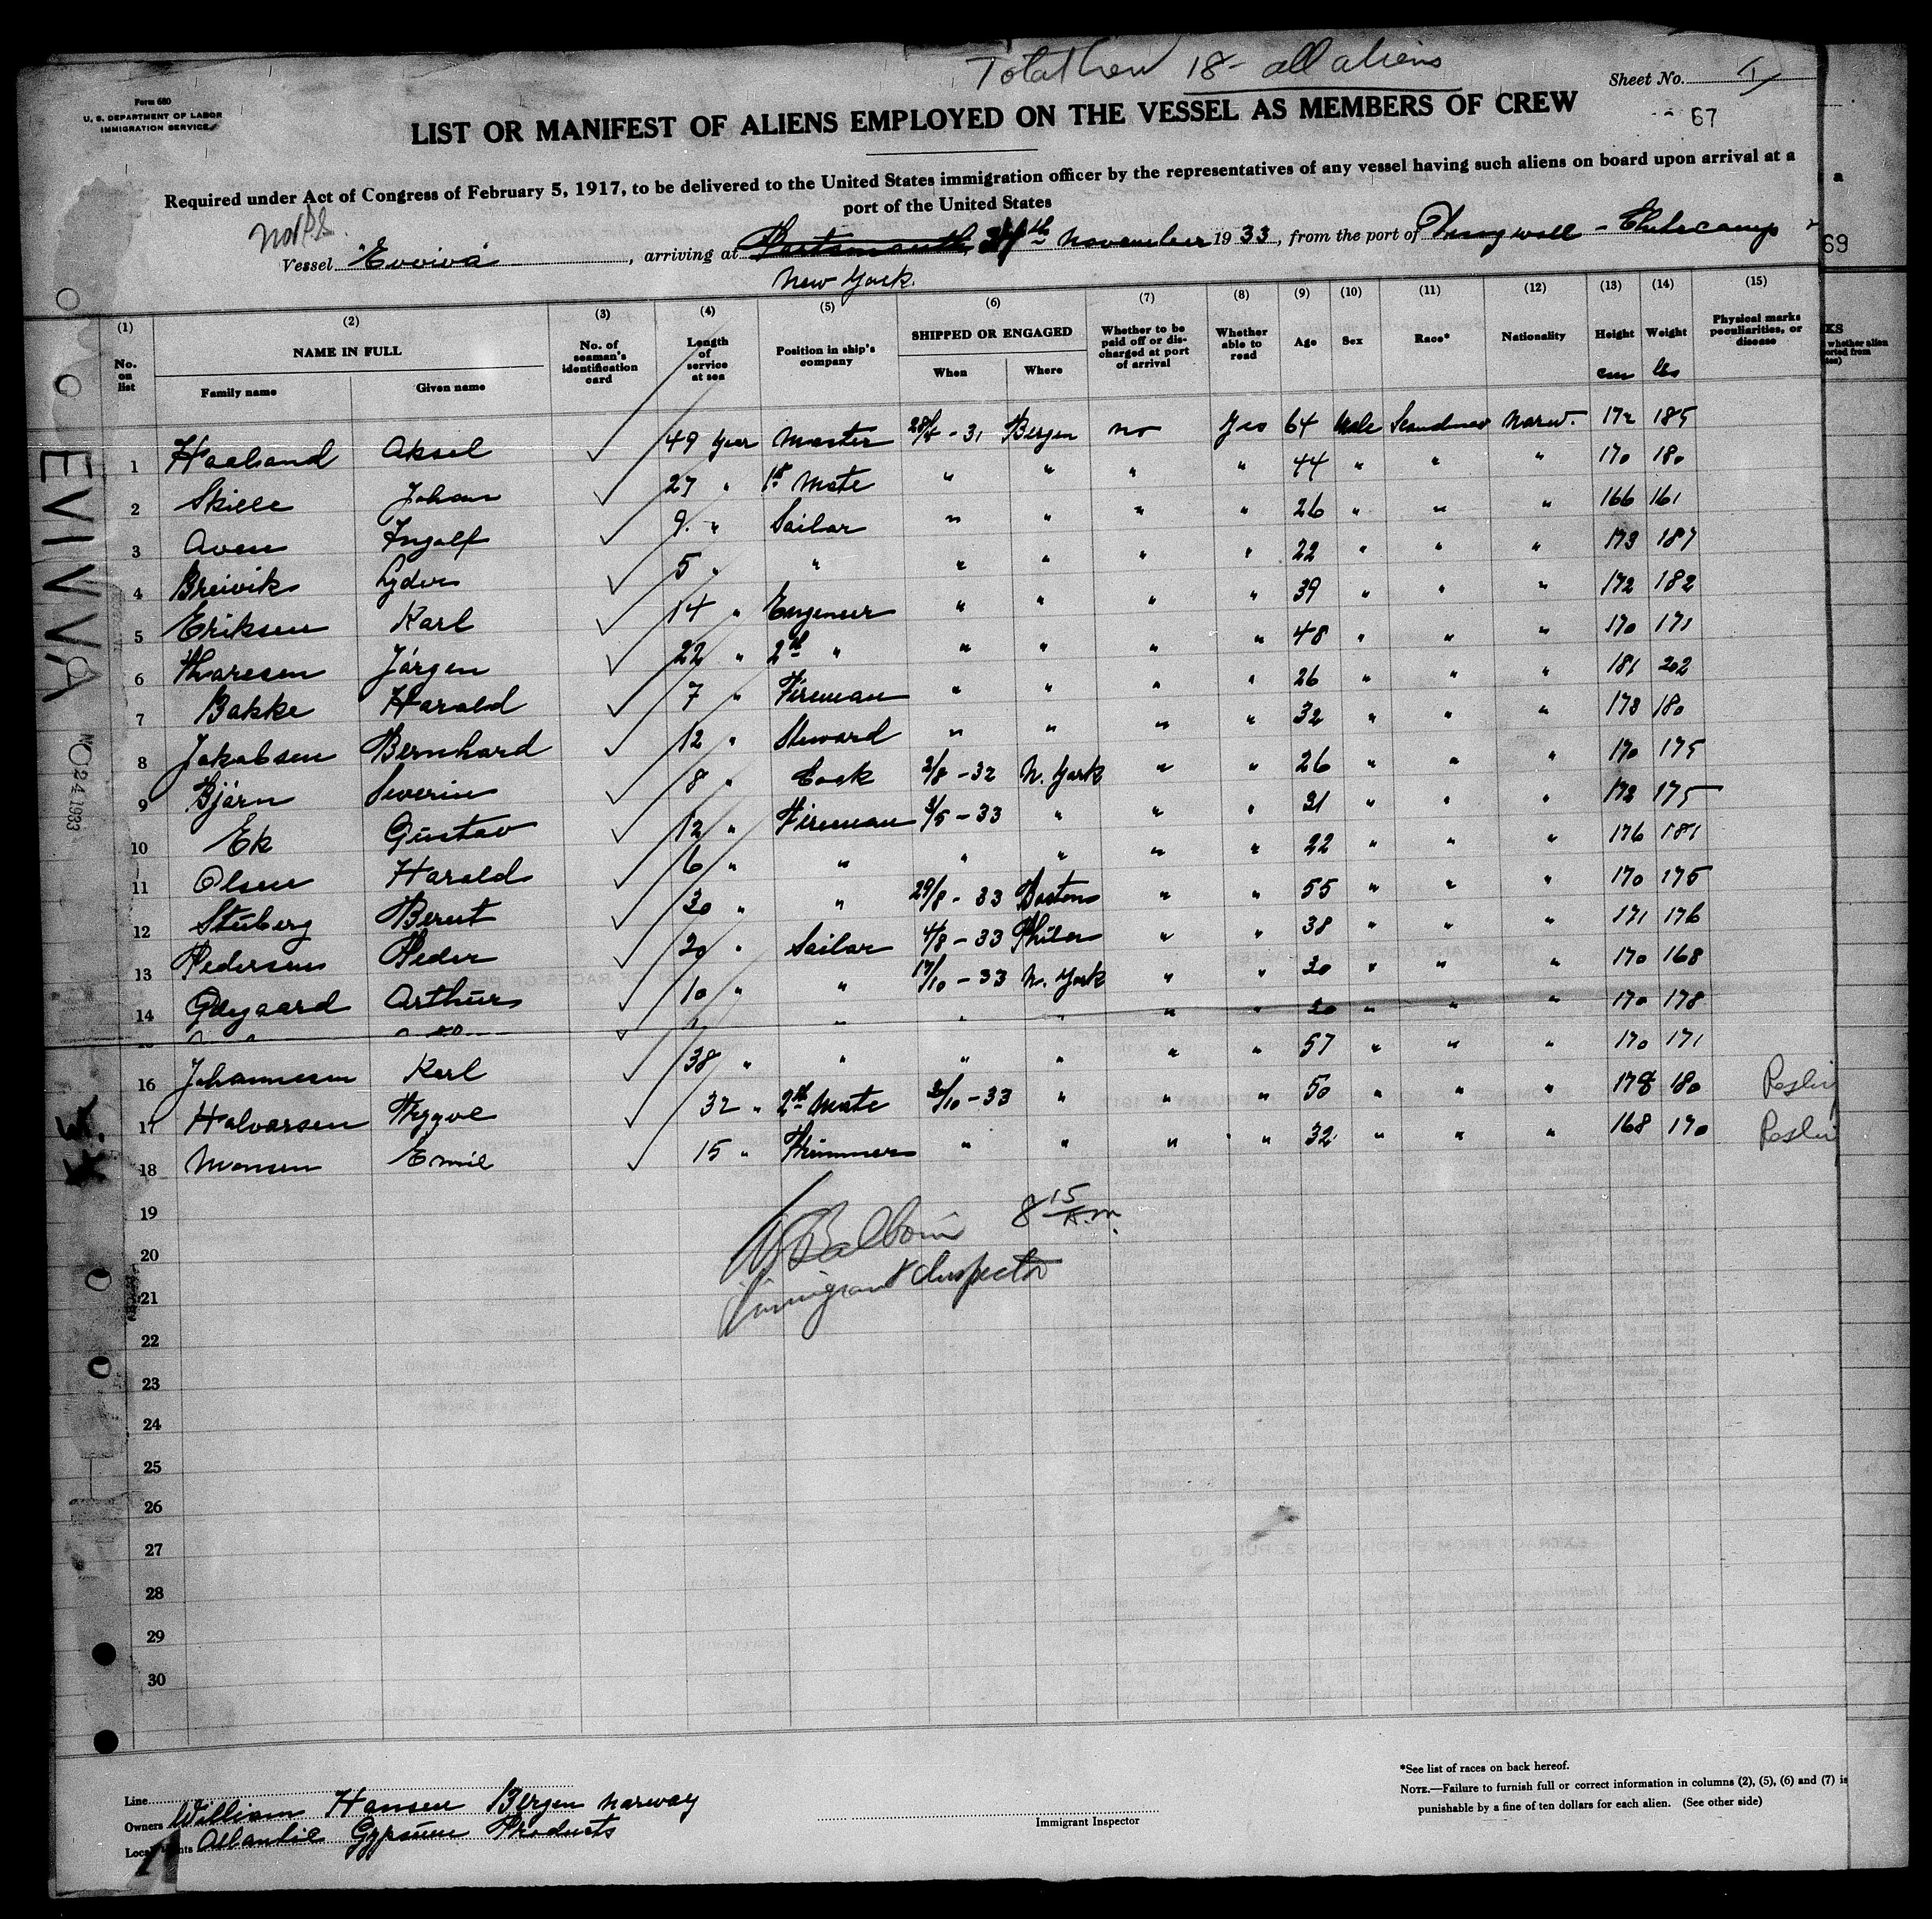 Total Crew 18 - all aliens
Sheet No. 1
Form 680
U. S. DEPARTMENT OF LABOR
IMMIGRATION SERVICE
LIST OR MANIFEST OF ALIENS EMPLOYED ON THE VESSEL AS MEMBERS OF CREW
67
Required under Act of Congress of February 5, 1917, to be delivered to the United States immigration officer by the representatives of any vessel having such aliens on board upon arrival at a
port of the United States
Vessel "Evviva", arriving at Portsmouth November 1933, from the port of - Chetecamp
New York.
69
(1) (2) (3) (4) (5) (6) (7) (8) (9) (10) (11) (12) (13) (14) (15)
No. on list NAME IN FULL Family name Given name No. of seaman's identification card Length of service at sea Position in ship's company SHIPPED OR ENGAGED When Where Whether to be paid off or discharged at port of arrival Whether able to read Age Sex Race* Nationality Height Weight Physical marks peculiarities, or disease
cm lbs
1 Haaland Aksel 49 year Master 28/4 - 31 Bergen no Yes 64 Male Scandinav Norw. 172 185
2 Skille Johan 27 " 1st Mate " " " " 44 " " " 170 180
3 Aven Ingolf 9 " Sailor " " " " 26 " " " 166 161
4 Breivik Lyder 5 " " " " " " 22 " " " 173 187
5 Eriksen Karl 14 " Engeneer " " " " 39 " " " 172 182
6 Thoresen Jörgen 22 " 2nd " " " " " 48 " " " 170 171
7 Bakke Harald 7 " Fireman " " " " 26 " " " 181 202
8 Jakobsen Bernhard 12 " Steward " " " " 32 " " " 173 180
9 Björn Severin 8 " Cook 2/8 - 32 N. York " " 26 " " " 170 175
10 Ek Gustav 12 " Fireman 3/5 - 33 " " " 31 " " " 172 175
11 Olsen Harald 6 " " " " " " 22 " " " 176 181
12 Stuberg Bernt 30 " " 29/8 - 33 Boston " " 55 " " " 170 175
13 Pedersen Peder 20 " Sailor 4/8 - 33 Phila " " 38 " " " 171 176
14 Ödegaard Arthur 10 " " 17/10 - 33 N. York " " 30 " " " 170 168
" " " " " 20 " " " 170 178
16 Johannesen Karl 38 " " " " " " 57 " " " 170 171
17 Halvorsen Trygve 32 " 2nd Mate 31/10 - 33 " " " 50 " " " 178 180
18 Monsen Emil 15 " Trimmer " " " " 32 " " " 168 170
19
20
21
22
23
24
25
26
27
28
29
30
8 15 A.m.
Immigrant Inspector
EVIVVA
NO 24 1933
*See list of races on back hereof.
NOTE.—Failure to furnish full or correct information in columns (2), (5), (6) and (7) is
punishable by a fine of ten dollars for each alien. (See other side)
Line
Owners William Hansen Bergen Norway
Local Agents Atlantic Gypsum Products
Immigrant Inspector